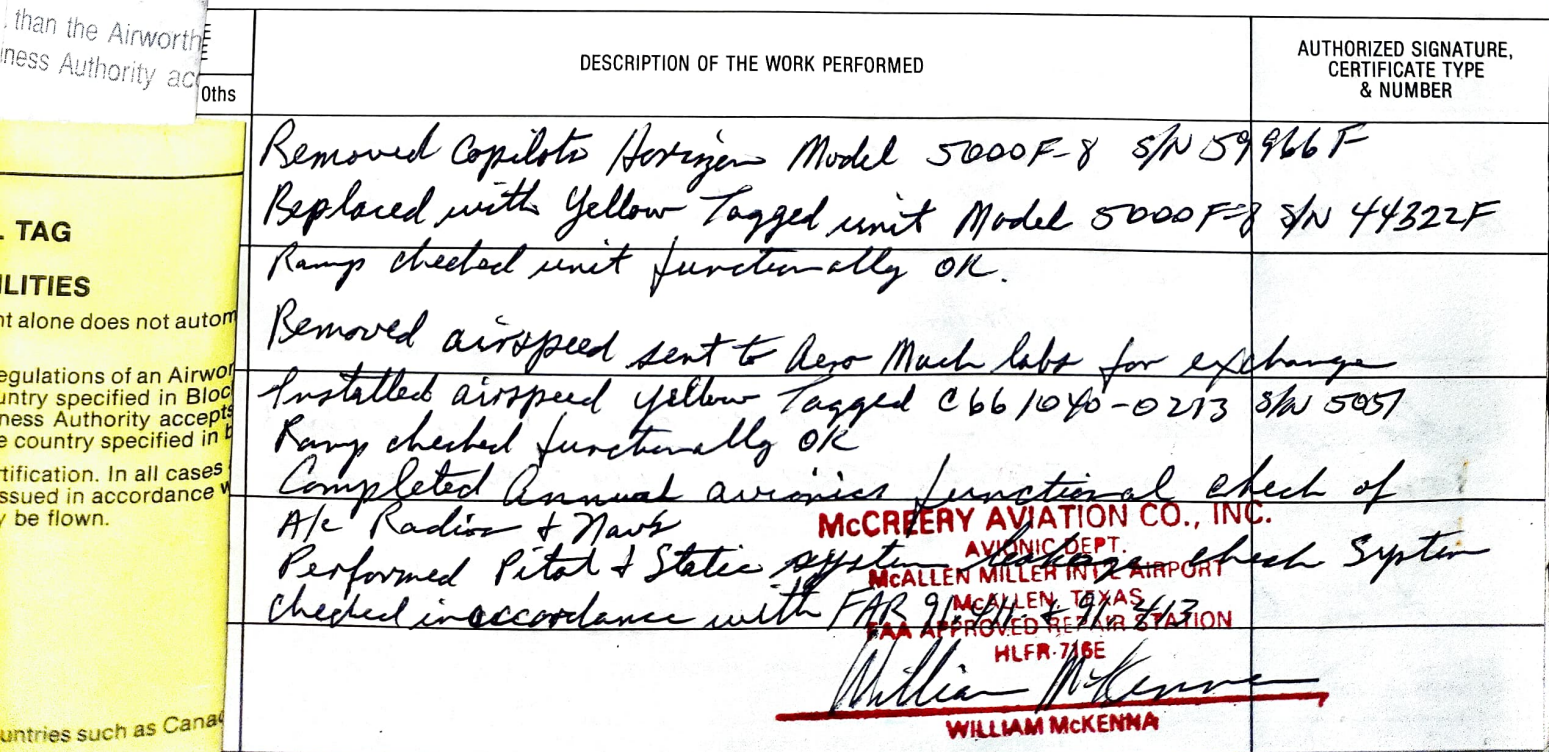 than the Airworthi
iness Authority acc
E
E
0ths
DESCRIPTION OF THE WORK PERFORMED
AUTHORIZED SIGNATURE,
CERTIFICATE TYPE
& NUMBER
. TAG
ILITIES
nt alone does not autom
egulations of an Airwor
untry specified in Bloc
ness Authority accepts
e country specified in b
tification. In all cases
ssued in accordance w
y be flown.
untries such as Canad
Removed Copilots Horizon Model 5000F-8 S/N 59966F
Replaced with Yellow Tagged unit Model 5000F-8 S/N 44322F
Ramp checked unit functionally OK.
Removed airspeed sent to Aero Mach labs for exchange
Installed airspeed yellow Tagged C661040-0213 S/N 5051
Ramp checked functionally OK
Completed Annual avionics functional check of
A/c Radios & Navs
Performed Pitot & Static system leakage check System
checked in accordance with FAR 91.411 & 91.413
McCREERY AVIATION CO., INC.
AVIONIC DEPT.
McALLEN MILLER INT'L AIRPORT
McALLEN, TEXAS
FAA APPROVED REPAIR STATION
HLFR-716E
William McKenna
WILLIAM McKENNA